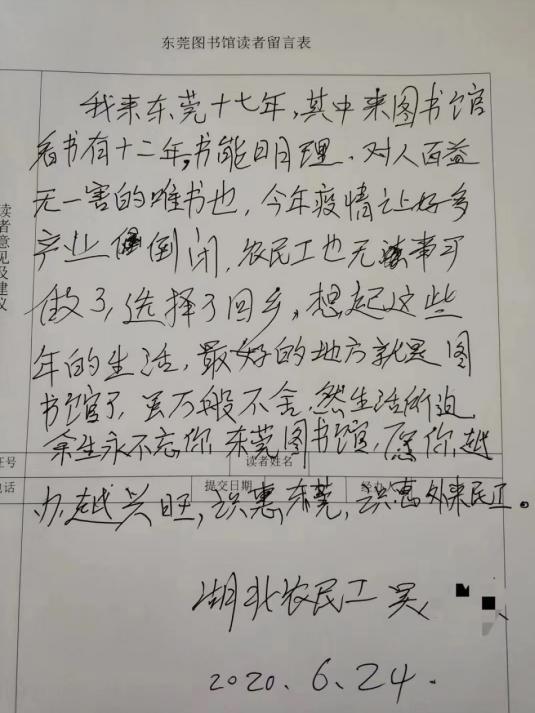 东莞图书馆读者留言表
我来东莞十七年，其中来图书馆
看书有十二年，书能明理，对人百益
无一害的唯书也，今年疫情让好多
产业倒闭，农民工也无事可
做了，选择了回乡，想起这些
年的生活，最好的地方就是图
书馆了，万般不舍，然生活所迫
余生永不忘你，东莞图书馆，愿你越
办越兴旺，识惠东莞，识惠外来民工。
读者意见及建议
证号
读者姓名
电话
提交日期
经办人
湖北农民工 吴
2020.6.24.